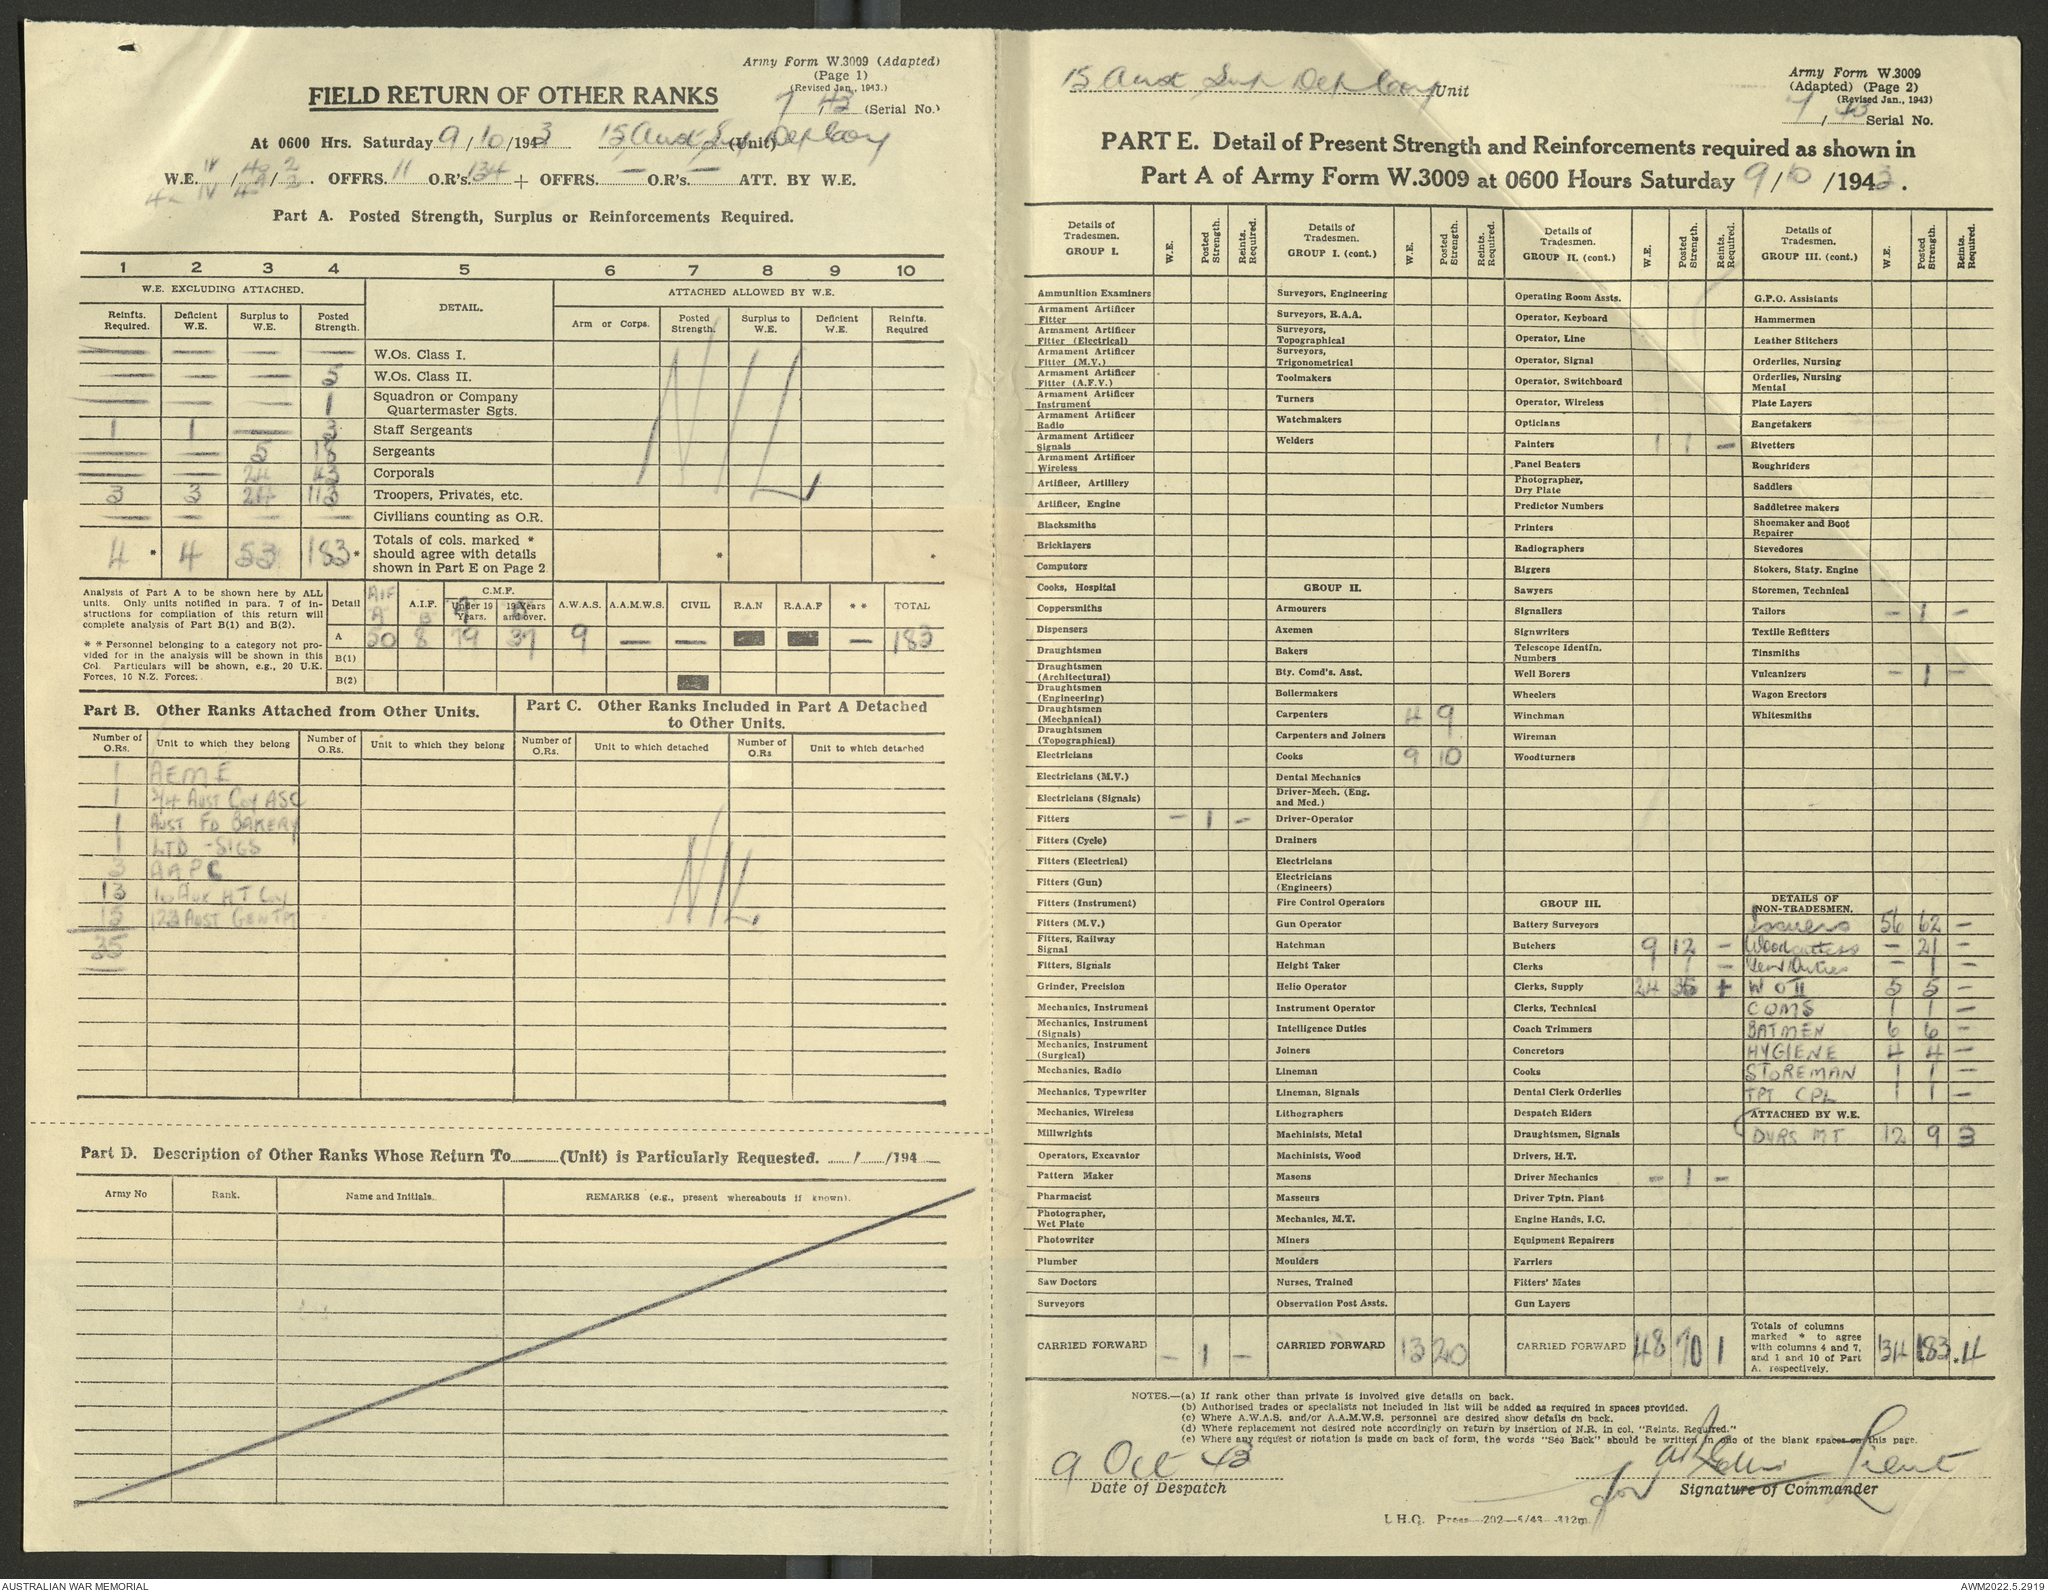 Army Form W.3009 (Adapted)
(Page 1)
(Revised Jan., 1943.)
FIELD RETURN OF OTHER RANKS
7 / 43 (Serial No.)
At 0600 Hrs. Saturday 9/10/1943 15 Aust Sup Dep Coy (Unit)
W.E. IV / 40 / 2 . OFFRS. 11 O.R's. 134 + OFFRS. — O.R's. — ATT. BY W.E.
Part A. Posted Strength, Surplus or Reinforcements Required.
1 2 3 4 5 6 7 8 9 10
W.E. EXCLUDING ATTACHED. DETAIL. ATTACHED ALLOWED BY W.E.
Reinfts. Required. Deficient W.E. Surplus to W.E. Posted Strength. Arm or Corps. Posted Strength. Surplus to W.E. Deficient W.E. Reinfts. Required
— — — — W.Os. Class I.
— — — 5 W.Os. Class II.
— — — 1 Squadron or Company Quartermaster Sgts.
1 1 — 3 Staff Sergeants
— — 5 18 Sergeants
— — 24 43 Corporals
3 3 24 113 Troopers, Privates, etc.
— — — — Civilians counting as O.R.
NIL
4 * 4 53 183 * Totals of cols. marked * should agree with details shown in Part E on Page 2 * *
Analysis of Part A to be shown here by ALL
units. Only units notified in para. 7 of in-
structions for compilation of this return will
complete analysis of Part B(1) and B(2).
* * Personnel belonging to a category not pro-
vided for in the analysis will be shown in this
Col. Particulars will be shown, e.g., 20 U.K.
Forces, 10 N.Z. Forces.
Detail AIF A A.I.F. B C.M.F. Under 19 Years. 19 Years and over. A.W.A.S. A.A.M.W.S. CIVIL R.A.N R.A.A.F * * TOTAL
A 50 8 79 37 9 — — — 183
B(1)
B(2)
Part B. Other Ranks Attached from Other Units.
Number of O.Rs. Unit to which they belong Number of O.Rs. Unit to which they belong
1 AEME
1 2/4 AUST Coy ASC
1 AUST FD BAKERY
1 LTD - SIGS
3 AAPC
13 10 AUX HT Coy
15 123 AUST GEN TPT
35
Part C. Other Ranks Included in Part A Detached to Other Units.
Number of O.Rs. Unit to which detached Number of O.Rs Unit to which detached
NIL
Part D. Description of Other Ranks Whose Return To (Unit) is Particularly Requested. / /194
Army No Rank. Name and Initials. REMARKS (e.g., present whereabouts if known).
15 Aust Sup Dep Coy Unit
Army Form W.3009
(Adapted) (Page 2)
(Revised Jan., 1943)
7 / 43 Serial No.
PART E. Detail of Present Strength and Reinforcements required as shown in
Part A of Army Form W.3009 at 0600 Hours Saturday 9/10/1943.
Details of Tradesmen. GROUP I. W.E. Posted Strength. Reints. Required.
Ammunition Examiners
Armament Artificer Fitter
Armament Artificer Fitter (Electrical)
Armament Artificer Fitter (M.V.)
Armament Artificer Fitter (A.F.V.)
Armament Artificer Instrument
Armament Artificer Radio
Armament Artificer Signals
Armament Artificer Wireless
Artificer, Artillery
Artificer, Engine
Blacksmiths
Bricklayers
Computors
Cooks, Hospital
Coppersmiths
Dispensers
Draughtsmen
Draughtsmen (Architectural)
Draughtsmen (Engineering)
Draughtsmen (Mechanical)
Draughtsmen (Topographical)
Electricians
Electricians (M.V.)
Electricians (Signals)
Fitters — 1 —
Fitters (Cycle)
Fitters (Electrical)
Fitters (Gun)
Fitters (Instrument)
Fitters (M.V.)
Fitters, Railway Signal
Fitters, Signals
Grinder, Precision
Mechanics, Instrument
Mechanics, Instrument (Signals)
Mechanics, Instrument (Surgical)
Mechanics, Radio
Mechanics, Typewriter
Mechanics, Wireless
Millwrights
Operators, Excavator
Pattern Maker
Pharmacist
Photographer, Wet Plate
Photowriter
Plumber
Saw Doctors
Surveyors
CARRIED FORWARD — 1 —
Details of Tradesmen. GROUP I. (cont.) W.E. Posted Strength. Reints. Required.
Surveyors, Engineering
Surveyors, R.A.A.
Surveyors, Topographical
Surveyors, Trigonometrical
Toolmakers
Turners
Watchmakers
Welders
GROUP II.
Armourers
Axemen
Bakers
Bty. Comd's. Asst.
Boilermakers
Carpenters 4 9
Carpenters and Joiners
Cooks 9 10
Dental Mechanics
Driver-Mech. (Eng. and Med.)
Driver-Operator
Drainers
Electricians
Electricians (Engineers)
Fire Control Operators
Gun Operator
Hatchman
Height Taker
Helio Operator
Instrument Operator
Intelligence Duties
Joiners
Lineman
Lineman, Signals
Lithographers
Machinists, Metal
Machinists, Wood
Masons
Masseurs
Mechanics, M.T.
Miners
Moulders
Nurses, Trained
Observation Post Assts.
CARRIED FORWARD 13 20
Details of Tradesmen. GROUP II. (cont.) W.E. Posted Strength. Reints. Required.
Operating Room Assts.
Operator, Keyboard
Operator, Line
Operator, Signal
Operator, Switchboard
Operator, Wireless
Opticians
Painters 1 1 —
Panel Beaters
Photographer, Dry Plate
Predictor Numbers
Printers
Radiographers
Riggers
Sawyers
Signallers
Signwriters
Telescope Identfn. Numbers
Well Borers
Wheelers
Winchman
Wireman
Woodturners
GROUP III.
Battery Surveyors
Butchers 9 12 —
Clerks 1 1 —
Clerks, Supply 24 35 +
Clerks, Technical
Coach Trimmers
Concretors
Cooks
Dental Clerk Orderlies
Despatch Riders
Draughtsmen, Signals
Drivers, H.T.
Driver Mechanics — 1 —
Driver Tptn. Plant
Engine Hands, I.C.
Equipment Repairers
Farriers
Fitters' Mates
Gun Layers
CARRIED FORWARD 48 70 1
Details of Tradesmen. GROUP III. (cont.) W.E. Posted Strength. Reints. Required.
G.P.O. Assistants
Hammermen
Leather Stitchers
Orderlies, Nursing
Orderlies, Nursing Mental
Plate Layers
Rangetakers
Rivetters
Roughriders
Saddlers
Saddletree makers
Shoemaker and Boot Repairer
Stevedores
Stokers, Staty. Engine
Storemen, Technical
Tailors — 1 —
Textile Refitters
Tinsmiths
Vulcanizers — 1 —
Wagon Erectors
Whitesmiths
DETAILS OF NON-TRADESMEN.
Issuers 56 62 —
Woodcutters — 21 —
Genl Duties — 1 —
W O II 5 5 —
CQMS 1 1 —
BATMEN 6 6 —
HYGIENE 4 4 —
STOREMAN 1 1 —
TPT CPL 1 1 —
ATTACHED BY W.E.
DVRS MT 12 9 3
Totals of columns marked * to agree with columns 4 and 7, and 1 and 10 of Part A. respectively. 134 183 . 4
NOTES.—(a) If rank other than private is involved give details on back.
(b) Authorised trades or specialists not included in list will be added as required in spaces provided.
(c) Where A.W.A.S. and/or A.A.M.W.S. personnel are desired show details on back.
(d) Where replacement not desired note accordingly on return by insertion of N.R. in col. "Reints. Required."
(e) Where any request or notation is made on back of form, the words "See Back" should be written in one of the blank spaces on this page.
9 Oct 43
Date of Despatch
for Lieut
Signature of Commander
L.H.Q. Press—202—5/43—312m.
AUSTRALIAN WAR MEMORIAL
AWM2022.5.2919